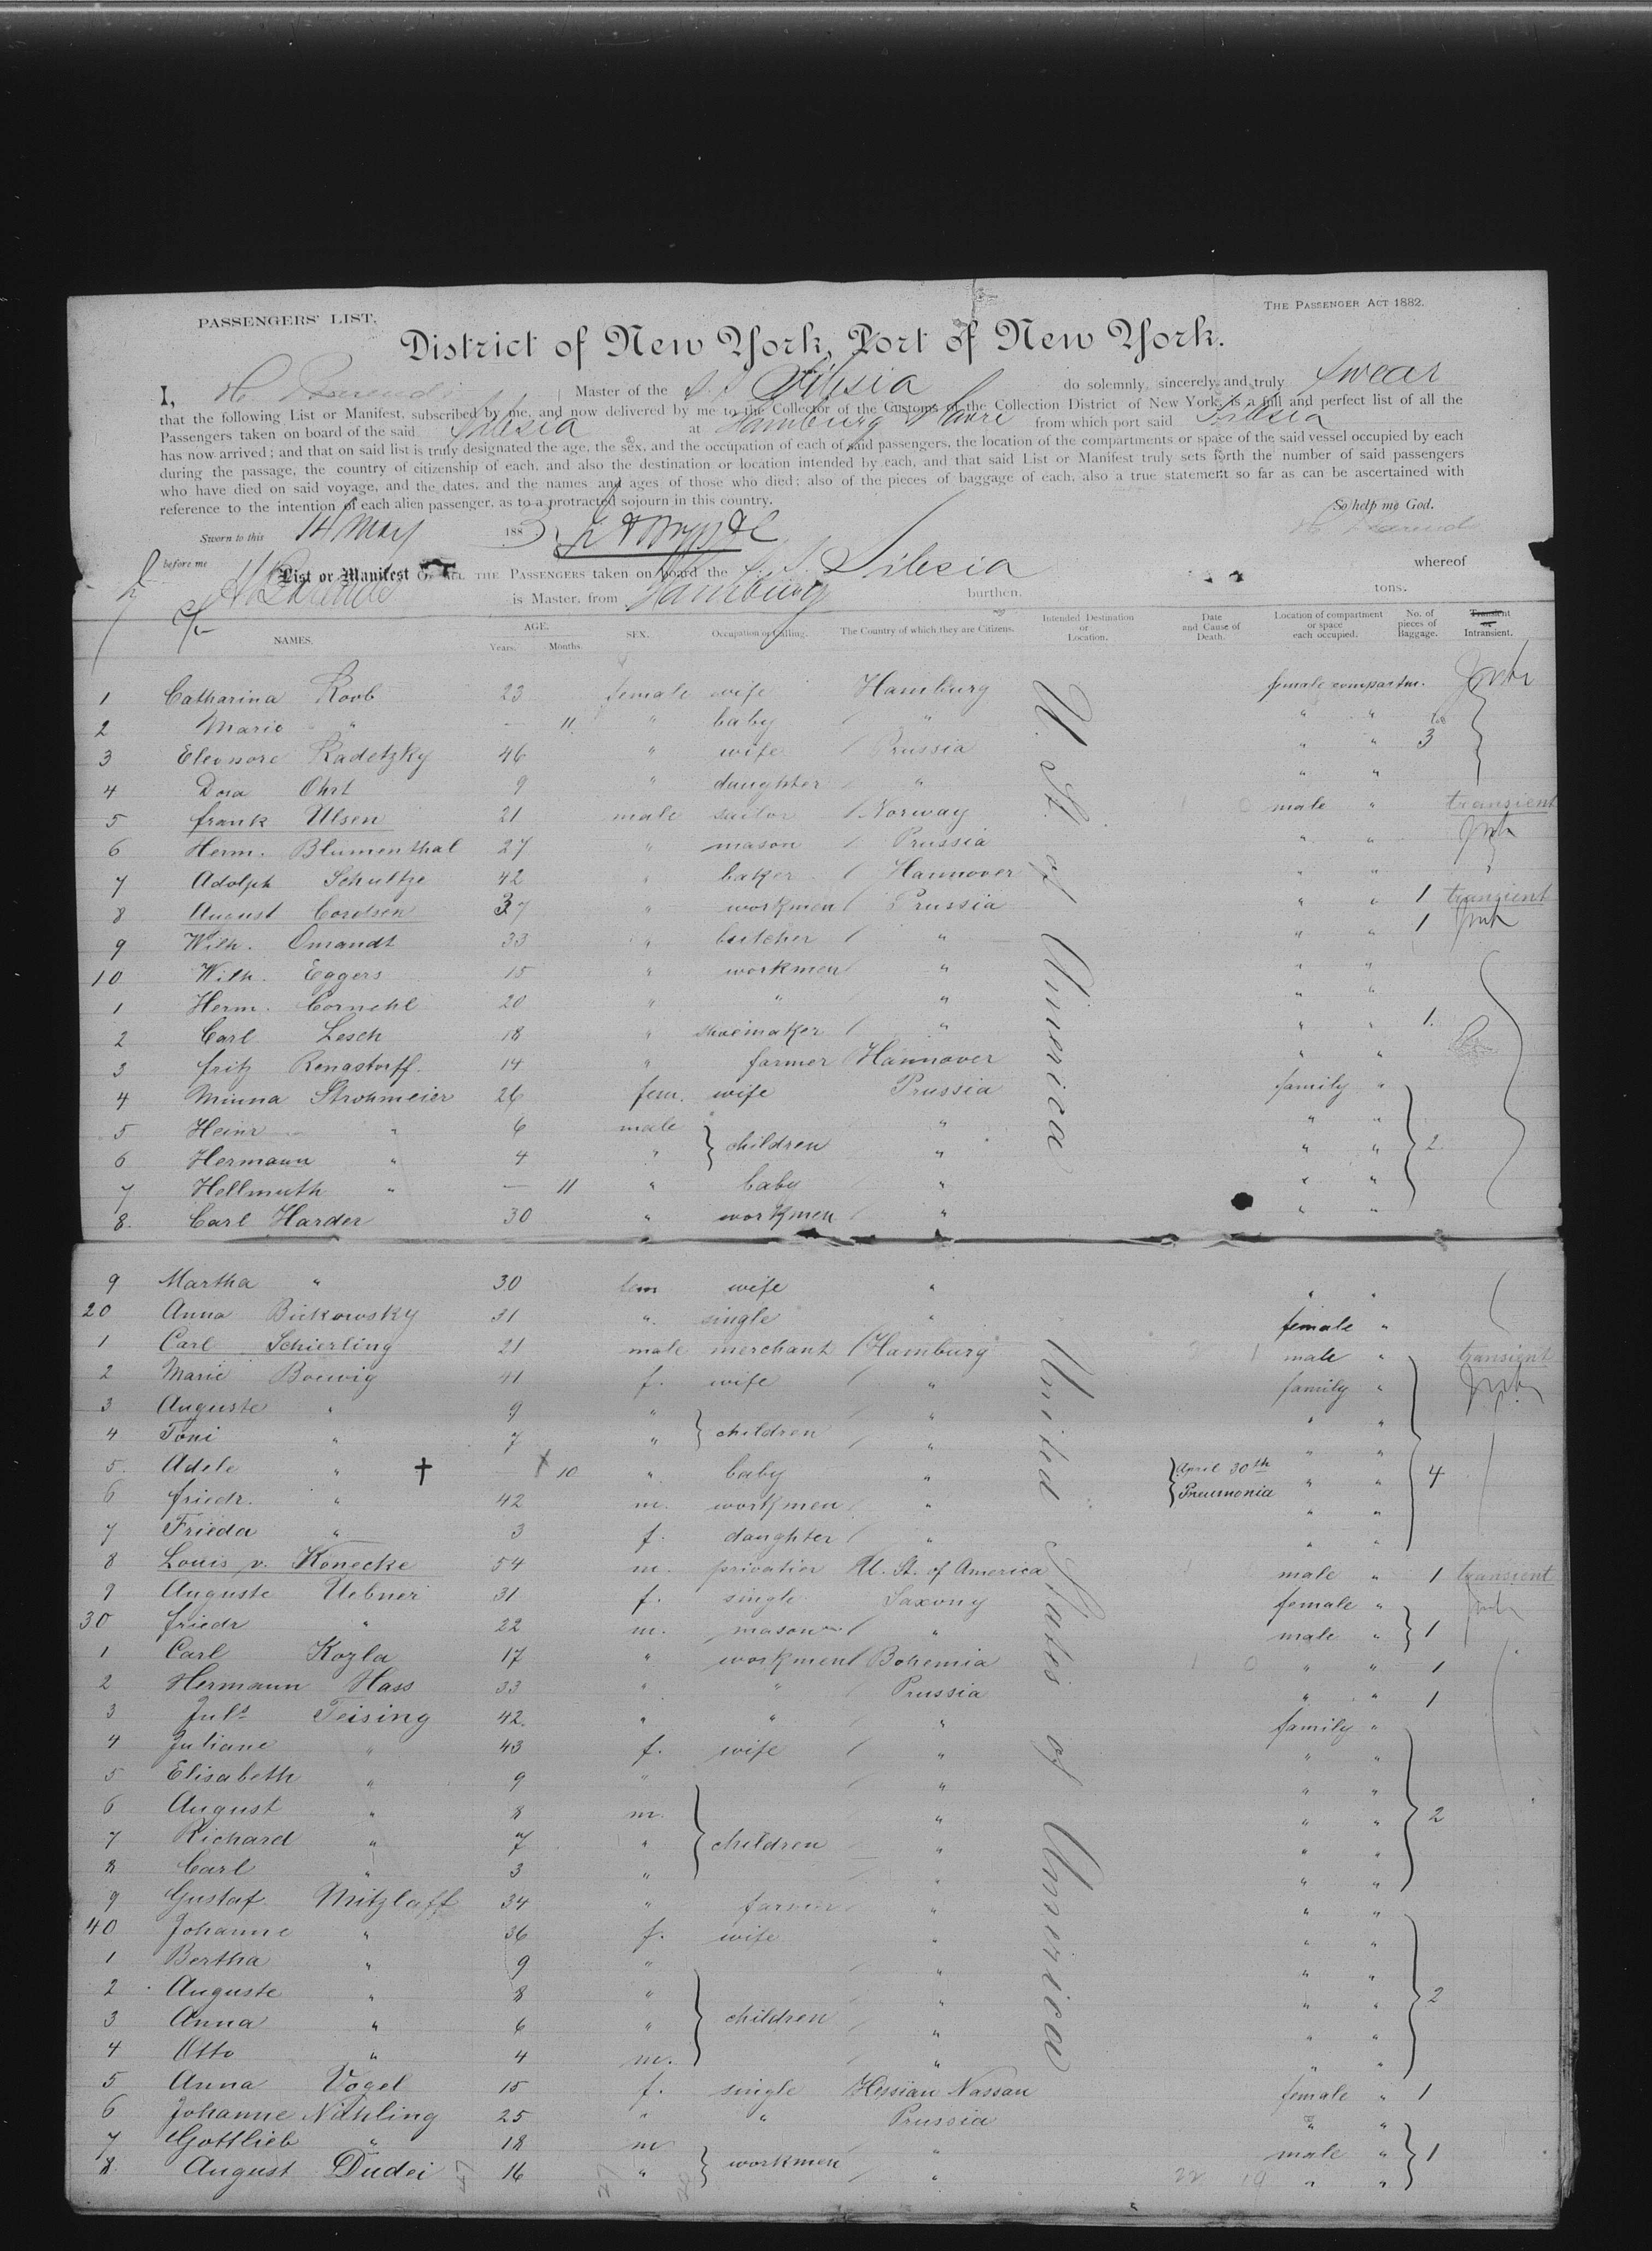 PASSENGERS' LIST.
THE PASSENGER ACT 1882.
District of New York, Port of New York.
I, Master of the S. S. Silesia do solemnly, sincerely and truly swear
that the following List or Manifest, subscribed by me, and now delivered by me to the Collector of the Customs of the Collection District of New York, is a full and perfect list of all the
Passengers taken on board of the said Silesia at Hamburg Havre from which port said Silesia
has now arrived; and that on said list is truly designated the age, the sex, and the occupation of each of said passengers, the location of the compartments or space of the said vessel occupied by each
during the passage, the country of citizenship of each, and also the destination or location intended by each, and that said List or Manifest truly sets forth the number of said passengers
who have died on said voyage, and the dates, and the names and ages of those who died; also of the pieces of baggage of each; also a true statement so far as can be ascertained with
reference to the intention of each alien passenger, as to a protracted sojourn in this country.
So help me God.
Sworn to this 14 May 1883
before me
List or Manifest OF ALL THE PASSENGERS taken on board the S. S. Silesia whereof
is Master, from Hamburg burthen, tons.
NAMES. AGE. Years. Months. SEX. Occupation or Calling. The Country of which they are Citizens. Intended Destination or Location. Date and Cause of Death. Location of compartment or space each occupied. No. of pieces of Baggage. Transient or Intransient.
U. St. of America
1 Catharina Roob 23 female wife Hamburg female compartm.
2 Marie " — 11 " baby " " "
3 Eleonore Radetzky 46 " wife Prussia " " 3
4 Dora Ohrt 9 " daughter " " "
5 Frank Ulsen 21 male sailor Norway male " transient
6 Herm. Blumenthal 27 " mason Prussia " "
7 Adolph Schultze 42 " baker Hannover " " "
8 August Cordsen 37 " workmen Prussia " " 1 transient
9 Wilh. Omandt 33 " butcher " " " 1
10 Wilh. Eggers 15 " workmen " " "
1 Herm. Cornehl 20 " " " " "
2 Carl Lesch 18 " shoemaker " " " 1.
3 Fritz Renastorff 14 " farmer Hannover " "
4 Minna Strohmeier 26 fem. wife Prussia family "
5 Heinr " 6 male children " " " 2
6 Hermann " 4 " " " "
7 Hellmuth " — 11 " baby " " "
8. Carl Harder 30 " workmen " " "
United States of America
9 Martha " 30 fem wife " " "
20 Anna Bickowsky 31 " single " female "
1 Carl Schierling 21 male merchant Hamburg male " transient
2 Marie Boewig 41 f. wife " family "
3 Auguste " 9 " children " " "
4 Toni " 7 " " " "
5. Adele " † 10 " baby " April 30th Pneumonia " " 4
6 Friedr. " 42 m. workmen " " "
7 Frieda " 3 f. daughter " " "
8 Louis v. Konecke 54 m. privatier U. St. of America male " 1 transient
9 Auguste Uebner 31 f. single Saxony female "
30 Friedr " 22 m. mason " male " 1
1 Carl Kozla 17 " workmen Bohemia " " 1
2 Hermann Hass 33 " " Prussia " " 1
3 Juls Teising 42. " " " family "
4 Juliane " 43 f. wife " " "
5 Elisabeth " 9 " " " "
6 August " 8 m. " " " 2
7 Richard " 7 " children " " "
8 Carl " 3 " " " "
9 Gustaf Mitzlaff 34 " farmer " " "
40 Johanne " 36 f. wife " " "
1 Bertha " 9 " " " "
2 Auguste " 8 " " " " 2
3 Anna " 6 " children " " "
4 Otto " 4 m. " " "
5 Anna Vogel 15 f. single Hessian Nassau female " 1
6 Johanne Nahling 25 " " Prussia " "
7 Gottlieb " 18 m workmen " male " 1
8. August Dudei 16 " " " "